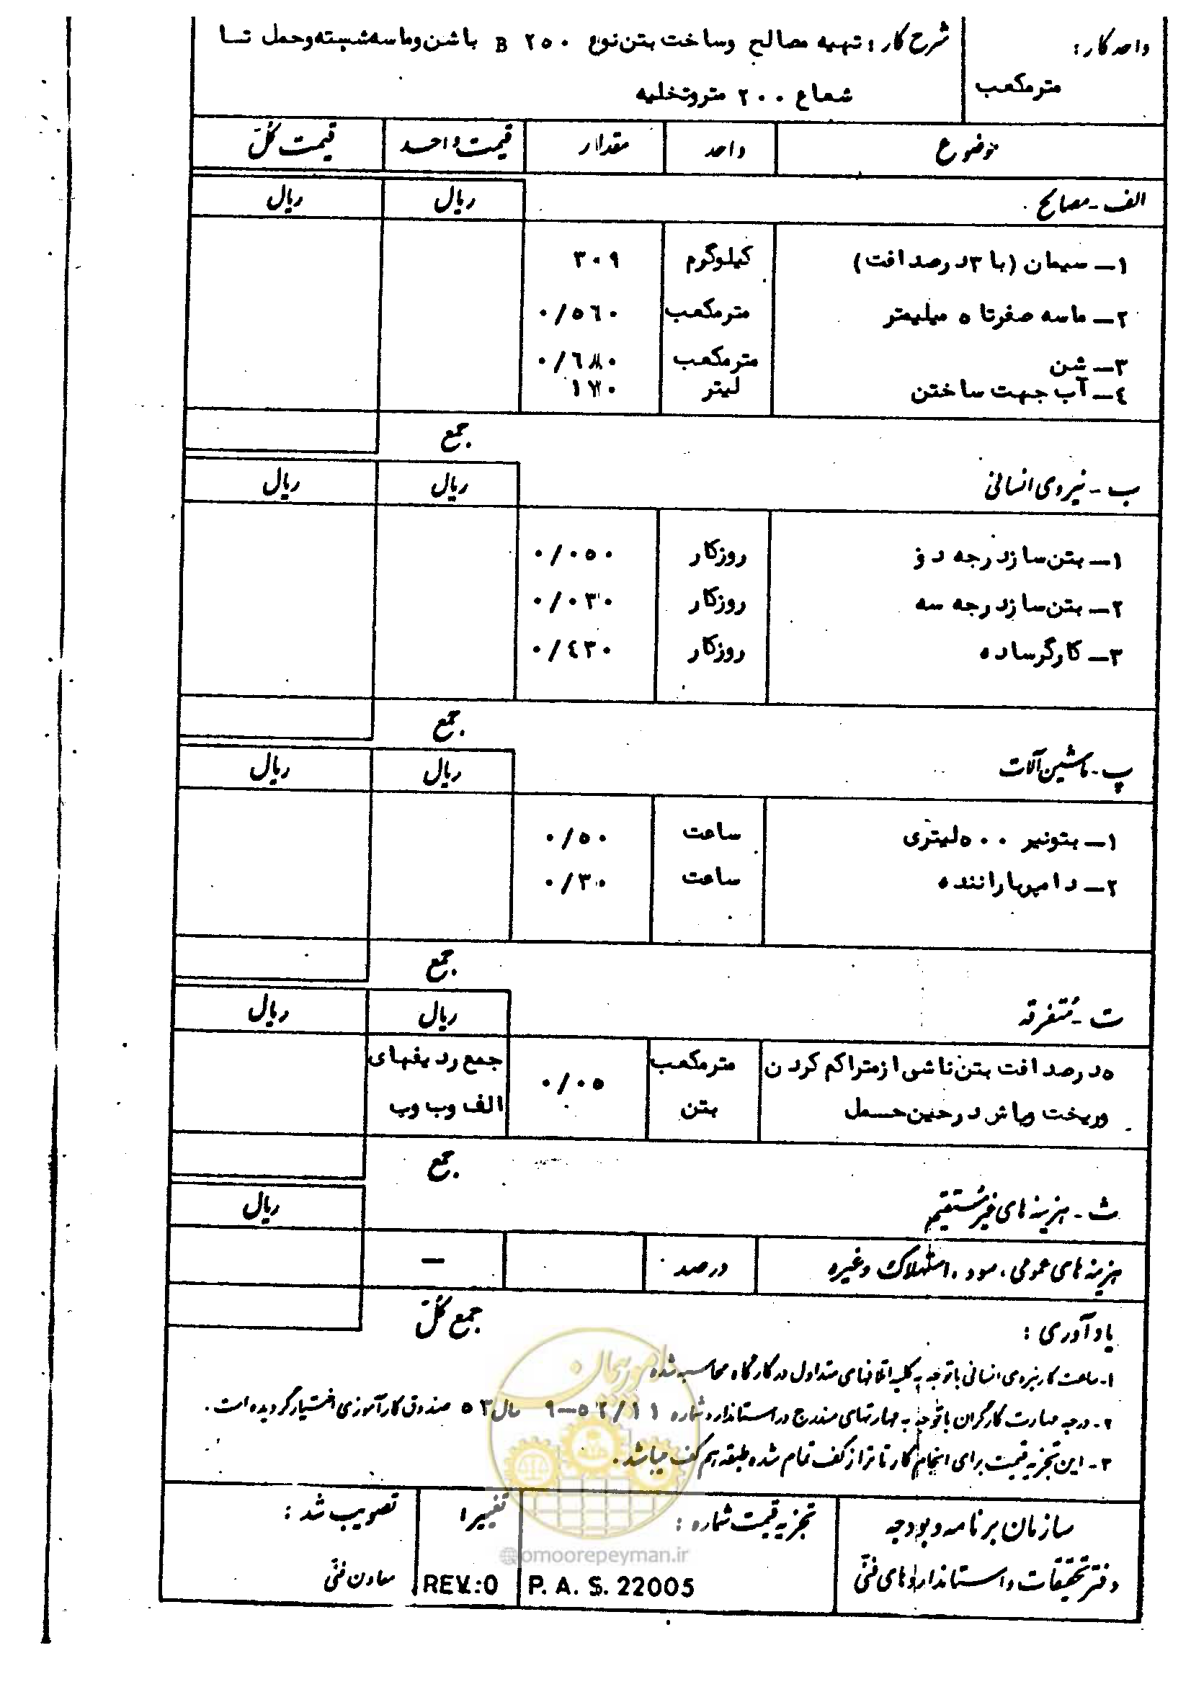 واحد کار :
شرح کار : تهیه مصالح وساخت بتن نوع B ۲۵۰ باشن وماسه شسته وحمل تــا
مترمکعب
شعاع ۲۰۰ متروتخلیه
موضوع واحد مقدار قیمت واحد قیمت کُلّ
الف - مصالح . ریال ریال
۱ـ سیمان (با ۳د رصد افت) کیلوگرم ۳۰۹
۲ـ ماسه صفرتا ۵ میلیمتر مترمکعب ۰/۵٦۰
۳ـ شن مترمکعب ۰/٦۸۰
٤ـ آب جهت ساختن لیتر ۱۷۰
جمع
ب - نیروی انسانی ریال ریال
۱ـ بتن ساز د رجه د و روزکار ۰/۰۵۰
۲ـ بتن ساز د رجه سه روزکار ۰/۰۳۰
۳ـ کارگرساد ه روزکار ۰/٤۳۰
جمع
پ - ماشین آلات ریال ریال
۱ـ بتونیر ۵۰۰ لیتری ساعت ۰/۵۰
۲ـ د امپرباراننده ساعت ۰/۳۰
جمع
ت - مُتفرقه ریال ریال
۵د رصد افت بتن ناشی ازمتراکم کرد ن مترمکعب ۰/۰۵ جمع رد یفهای
وریخت وپاش د رحین حمل بتن الف وب وپ
جمع
ث - هزینه های غیرمُستقیم ریال
هزینه های عمومی ، سود ، استهلاک وغیره درصد —
جمع کُلّ
یادآوری :
۱- ساعت کار نیروی انسانی باتوجه به کلیه اتلافهای متداول در کارگاه محاسبه شده
۲- درجه مهارت کارگران باتوجه به مهارتهای مندرج در استاندارد شماره ۱۱/۵۲–۹ سال ۵۳ صندوق کارآموزی اختیار گردیده است .
۳- این تجزیه قیمت برای انجام کار تا تراز کف تمام شده طبقه هم کف میباشد .
امور پیمان
سازمان برنامه وبودجه تجزیه قیمت شماره : تغییر : تصویب شد :
دفتر تحقیقات و استانداردهای فنّی P. A. S. 22005 REV.:0 معاون فنّی
@omoorepeyman.ir